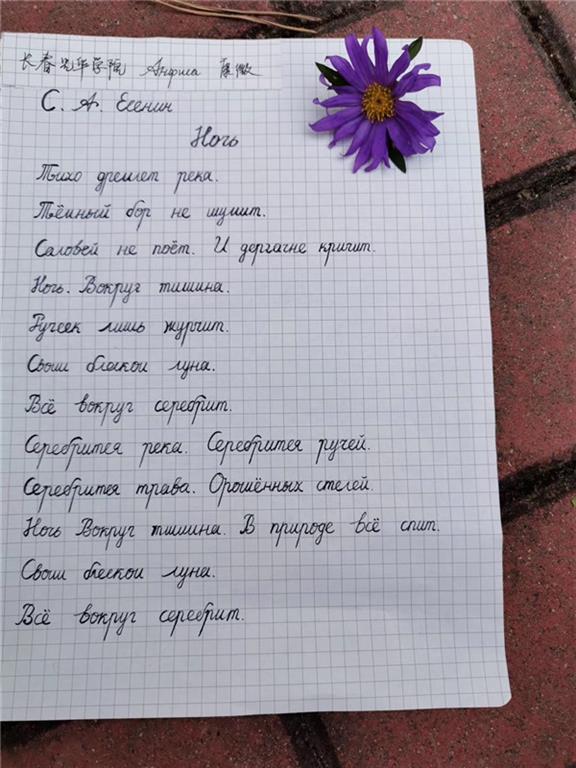 长春光华学院 Анфиса 廖微
С. А. Есенин
Ночь
Тихо дремлет река.
Тёмный бор не шумит.
Саловей не поёт. И дергачне кричит.
Ночь. Вокруг тишина.
Ручеек лишь журчит.
Своим блеском луна.
Всё вокруг серебрит.
Серебрится река. Серебрится ручей.
Серебрится трава. Орошённых степей.
Ночь Вокруг тишина. В природе всё спит.
Своим блеском луна.
Всё вокруг серебрит.